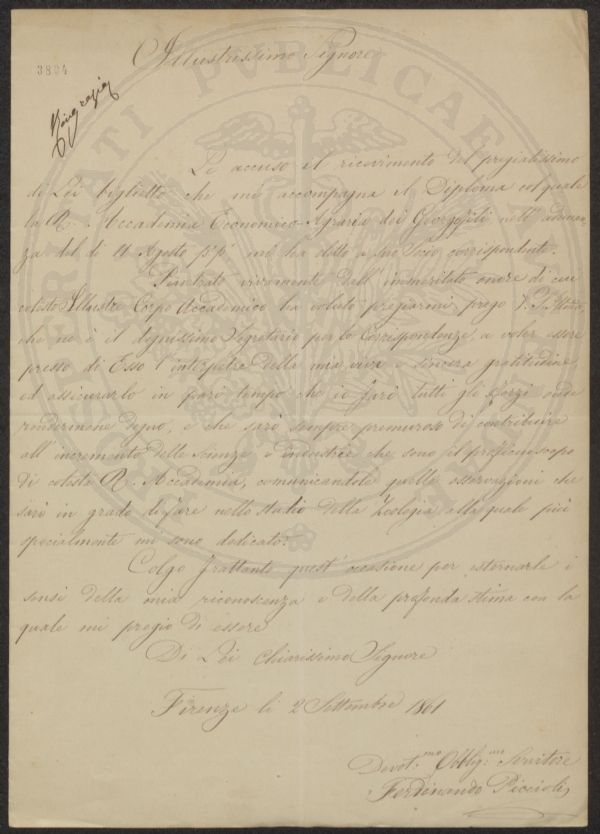 Illustrissimo Signore
3804
Ringrazia
Le accuso il ricevimento del pregiatissimo
di Lei biglietto che mi accompagna il Diploma col quale
la R. Accademia Economico-Agraria dei Georgofili nell' adunan-
za del dì 11 Agosto p.p. mi ha eletto a suo Socio corrispondente.
Penetrato vivamente dall' immeritato onore di cui
cotesto Illustre Corpo Accademico ha voluto pregiarmi, prego V. S. Illma,
che ne è il degnissimo Segretario per le Corrispondenze, a voler essere
presso di Esso l'interpetre della mia viva e sincera gratitudine
ed assicurarlo in pari tempo che io farò tutti gli sforzi onde
rendermene degno, e che sarò sempre premuroso di contribuire
all' incremento delle Scienze e industrie che sono il proficuo scopo
di cotesta R. Accademia, comunicandole quelle osservazioni che
sarò in grado di fare nello studio della Zoologia alla quale più
specialmente mi sono dedicato.
Colgo frattanto quest' occasione per esternarle i
sensi della mia riconoscenza e della profonda stima con la
quale mi pregio di essere
Di Lei Chiarissimo Signore
Firenze lì 2 Settembre 1861
Devot.mo Obblig.mo Servitore
Ferdinando Piccioli
PROSPERITATI PUBLICAE AUGENDAE